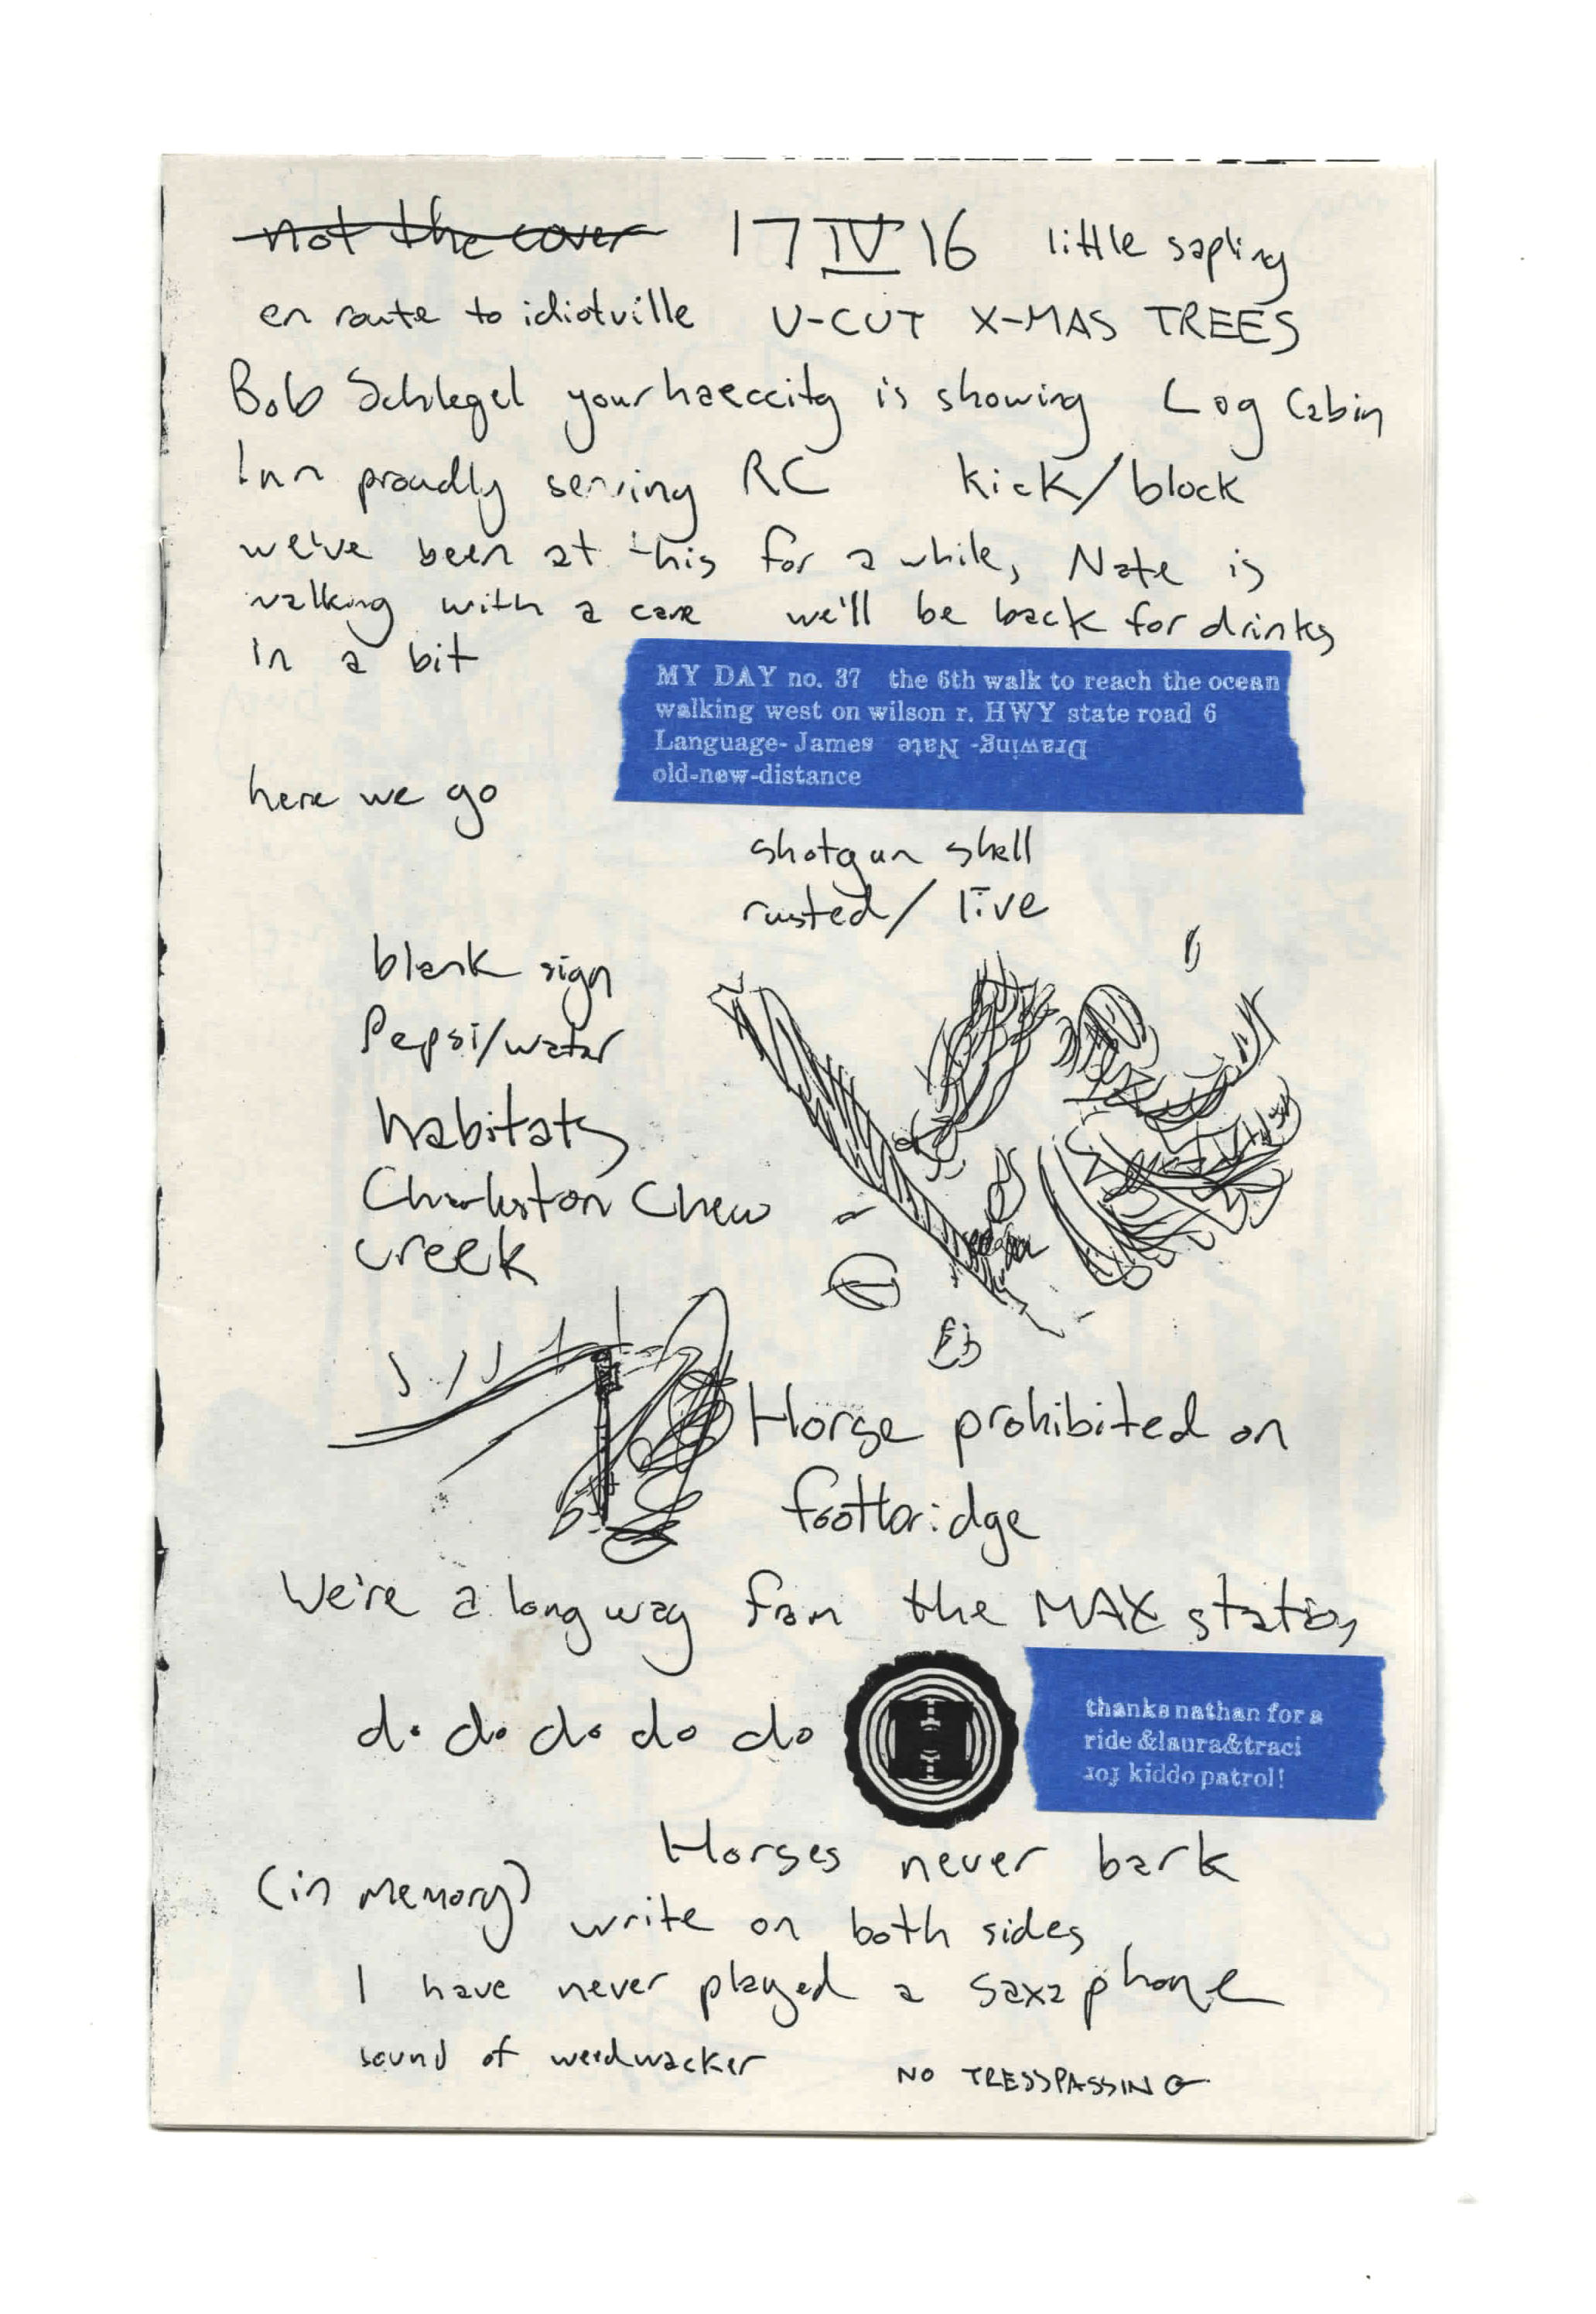 not the cover 17 IV 16 little sapling
en route to idiotville U-CUT X-MAS TREES
Bob Schlegel your haeccity is showing Log Cabin
Inn proudly serving RC kick/block
we've been at this for a while, Nate is
walking with a cane we'll be back for drinks
in a bit
MY DAY no. 37 the 6th walk to reach the ocean
walking west on wilson r. HWY state road 6
Language- James Drawing- Nate
old-new-distance
here we go
shotgun shell
rusted/ live
blank sign
Pepsi/water
habitats
Charleston Chew
creek
Horse prohibited on
footbridge
We're a long way from the MAX station
do do do do do
thanks nathan for a
ride &laura&traci
for kiddo patrol!
Horses never bark
(in memory)
write on both sides
I have never played a saxaphone
sound of weedwacker
NO TRESSPASSING